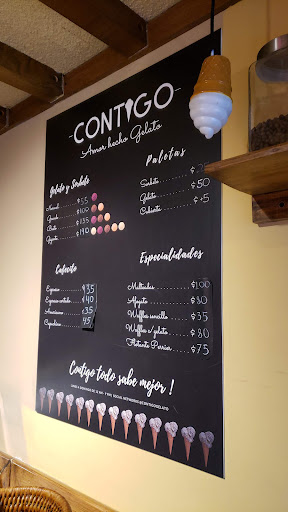 CONTIGO
Amor hecho Gelato
Gelato y Sorbete
Normal $55
Grande $100
$135
Gigante $190
Paletas
Sorbete
Gelato $50
Cubierta $+5
Cafecito
Espresso $35
Espresso cortado $40
Americano $35
Capuchino 45
Especialidades
Malteadas $100
Affogato $80
Waffles sencillo $35
Waffles c/gelato $80
Flotante Perrier $75
Contigo todo sabe mejor !